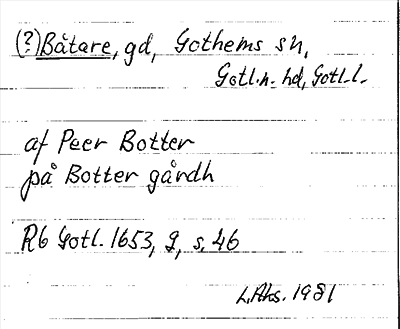 (?) Båtare, gd, Gothems sn,
Gotl.n. hd, Gotl.l.
af Peer Botter
på Botter gårdh
Rb Gotl. 1653, 9, s. 46
L.Ahs. 1981